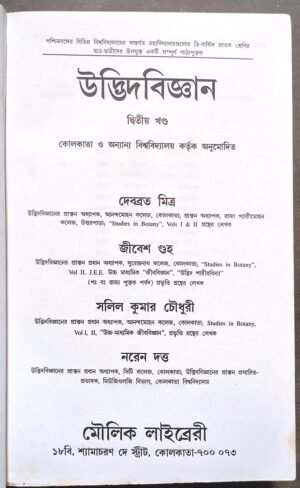 পশ্চিমবঙ্গের বিভিন্ন বিশ্ববিদ্যালয়ের অন্তর্গত মহাবিদ্যালয়গুলোর ত্রি-বার্ষিক স্নাতক শ্রেণির
ছাত্র-ছাত্রীদের উপযুক্ত একটি সম্পূর্ণ পাঠ্যপুস্তক
উদ্ভিদবিজ্ঞান
দ্বিতীয় খণ্ড
কোলকাতা ও অন্যান্য বিশ্ববিদ্যালয় কর্তৃক অনুমোদিত
দেবব্রত মিত্র
উদ্ভিদবিজ্ঞানের প্রাক্তন অধ্যাপক, আনন্দমোহন কলেজ, কোলকাতা; প্রাক্তন অধ্যাপক, রাজা প্যারীমোহন
কলেজ, উত্তরপাড়া, "Studies in Botany", Vols I & II গ্রন্থের লেখক
জীবেশ গুহ
উদ্ভিদবিজ্ঞানের প্রাক্তন প্রধান অধ্যাপক, সুরেন্দ্রনাথ কলেজ, কোলকাতা, "Studies in Botany",
Vol II, J.E.E. উচ্চ মাধ্যমিক "জীববিজ্ঞান", "উদ্ভিদ শারীরবিদ্যা"
(পঃ বঃ রাজ্য পুস্তক পর্ষদ) প্রভৃতি গ্রন্থের লেখক
সলিল কুমার চৌধুরী
উদ্ভিদবিজ্ঞানের প্রাক্তন প্রধান অধ্যাপক, আনন্দমোহন কলেজ, কোলকাতা, Studies in Botany,
Vol I, II, "উচ্চ-মাধ্যমিক জীববিজ্ঞান", প্রভৃতি গ্রন্থের লেখক
নরেন দত্ত
উদ্ভিদবিজ্ঞানের প্রাক্তন প্রধান অধ্যাপক, সিটি কলেজ, কোলকাতা; উদ্ভিদবিজ্ঞানের প্রাক্তন প্রসারিত-
প্রভাষক, মিউজিওলজি বিভাগ, কোলকাতা বিশ্ববিদ্যালয়
মৌলিক লাইব্রেরী
১৮বি, শ্যামাচরণ দে স্ট্রীট, কোলকাতা-৭০০ ০৭৩